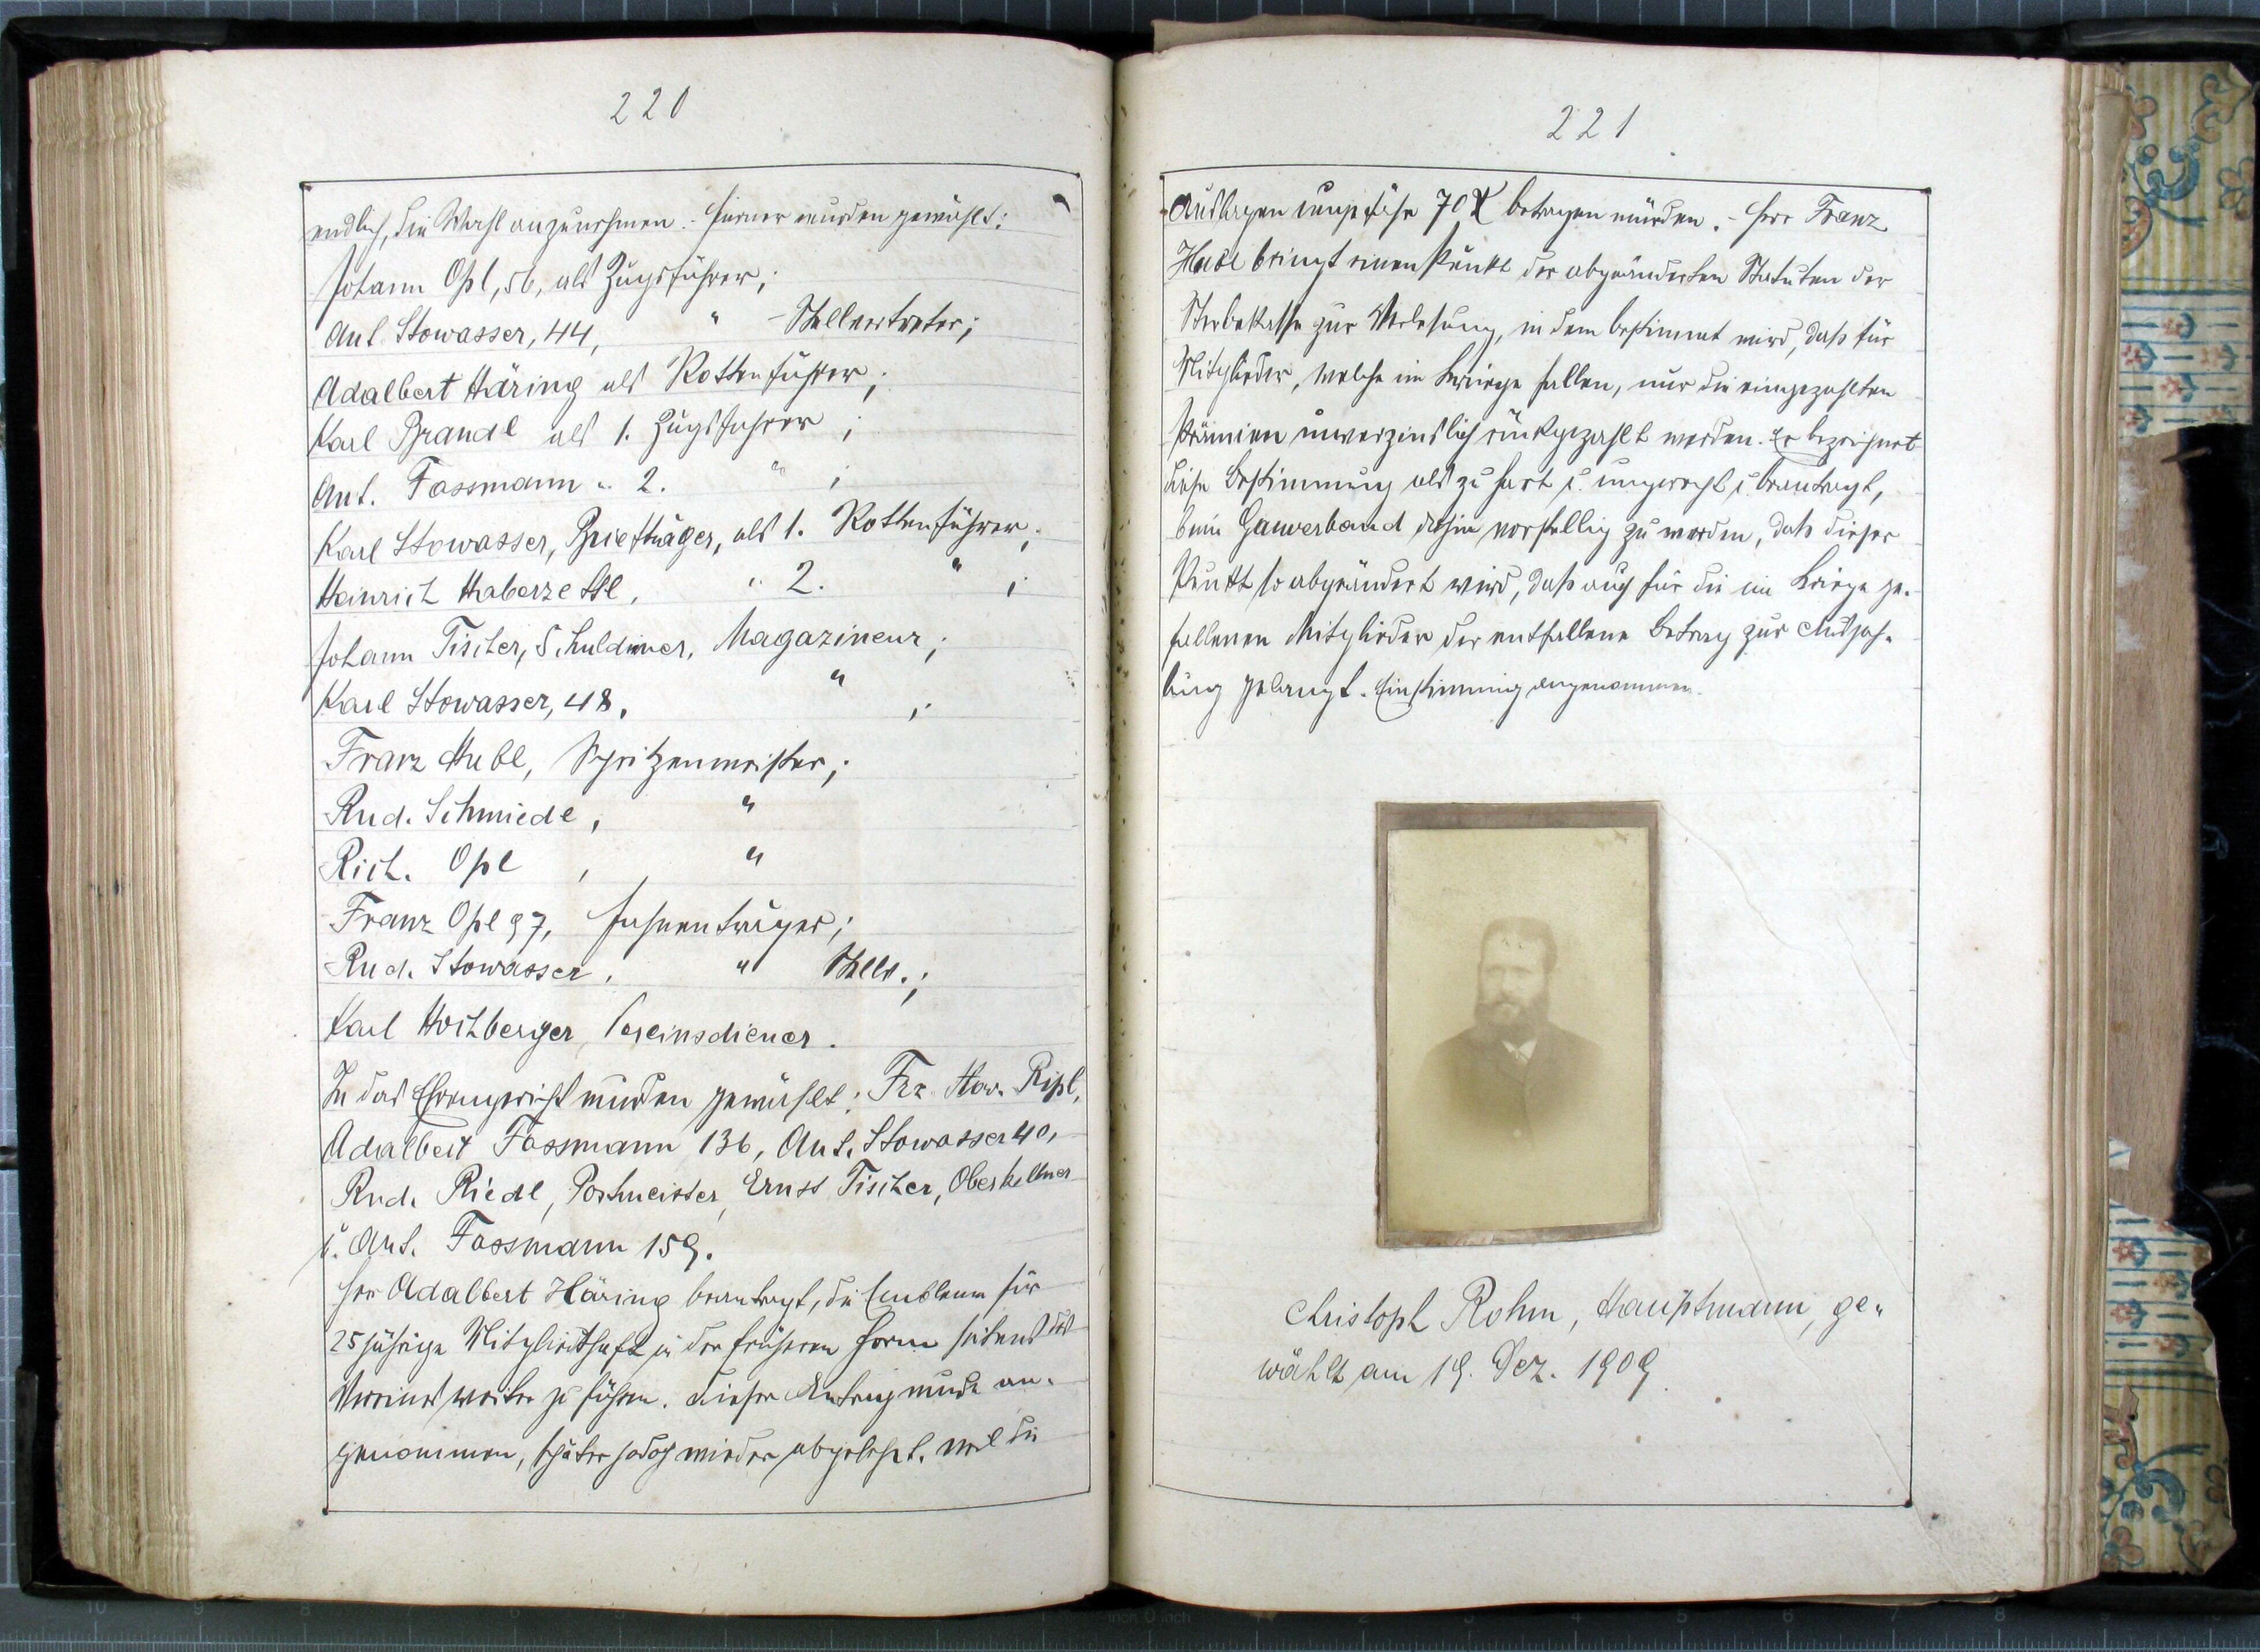 220
endlich, die Wahl anzunehmen. - Ferner wurden gewählt:
Johann Opl, 56, als Zugsführer;
Ant. Stowasser, 44, " - Stellvertreter;
Adalbert Häring als Rottenführer;
Karl Brandl als 1. Zugsführer;
Ant. Fassmann " 2. " ;
Karl Stowasser, Briefträger, als 1. Rottenführer;
Heinrich Haberzettl, " 2. " ;
Johann Tischer, Schuldiener, Magazineur;
Karl Stowasser, 48, " ;
Franz Hubl, Spritzenmeister;
Rud. Schmiedl, "
Rich. Opl , "
Franz Opl 97, Fahnenträger;
Rud. Stowasser, " Stellv.;
Karl Hochberger, Vereinsdiener.
In das Ehrengericht wurden gewählt: Frz. Ripl,
Adalbert Fassmann 136, Ant. Stowasser 40,
Rud. Riedl, Postmeister, Ernst Tischer, Oberkellner
u. Ant. Fassmann 159.
Herr Adalbert Häring beantragt, die Embleme für
25 jährige Mitgliedschaft in der früheren Form seitens des
Vereines weiter zu führen. Dieser Antrag wurde an-
genommen, später jedoch wieder abgelehnt, weil die
221
Auslagen ungefähr 70 K betragen würden. - Herr Franz
Hubl bringt einen Punkt der abgeänderten Statuten der
Sterbekasse zur Verlesung, in dem bestimmt wird, daß für
Mitglieder, welche im Kriege fallen, nur die eingezahlten
Prämien unverzinslich rückgezahlt werden. Er bezeichnet
diese Bestimmung als zu hart u. ungerecht u. beantragt,
beim Gauverband dahin vorstellig zu werden, daß dieser
Punkt so abgeändert wird, daß auch für die im Kriege ge-
fallenen Mitglieder der entfallene Betrag zur Auszah-
lung gelangt. Einstimmig angenommen.
Christoph Rohm, Hauptmann, ge-
wählt am 19. Dez. 1909